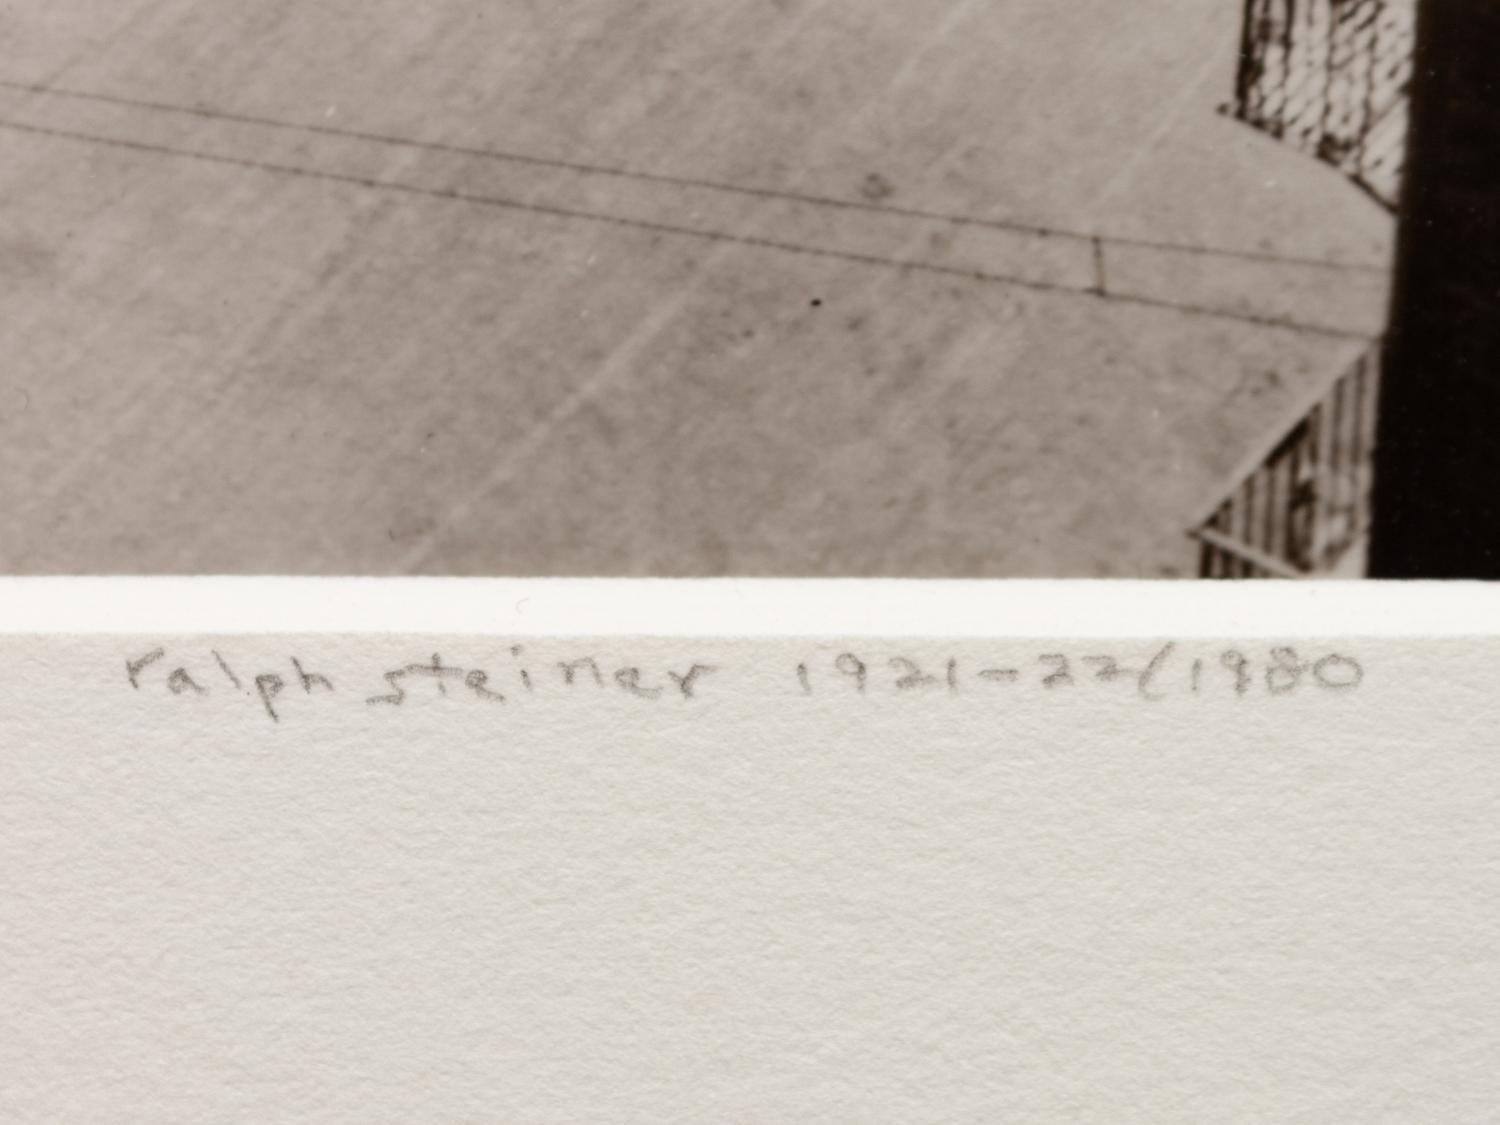 ralph steiner 1921-22/1980